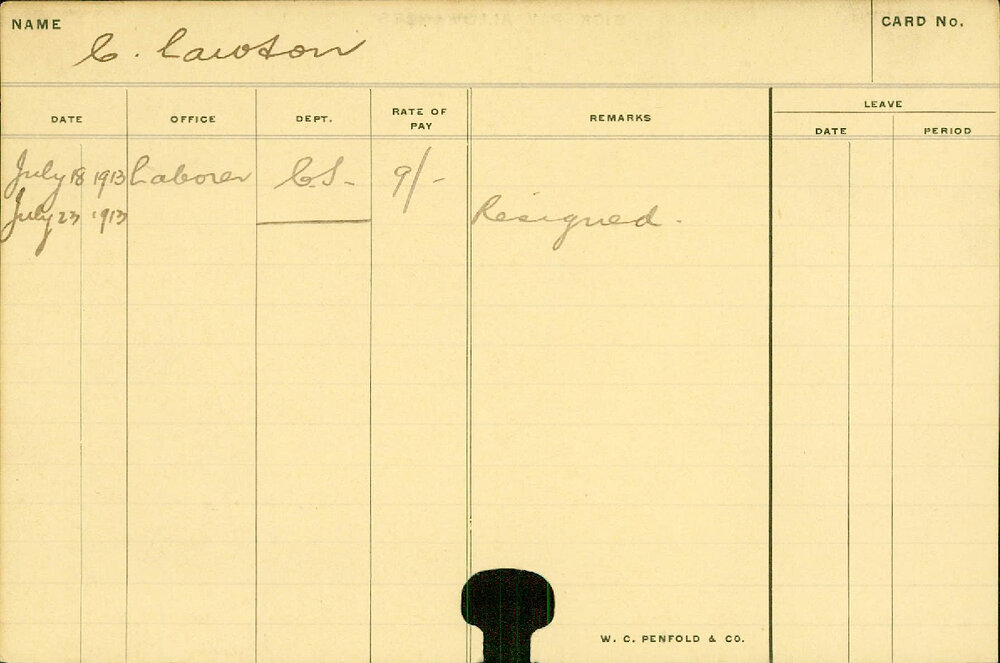 NAME
C. Lawson
CARD No.
DATE OFFICE DEPT. RATE OF PAY REMARKS LEAVE
DATE PERIOD
July 18 1913 Laborer C.S- 9/-
July 23 1913 Resigned.
W. C. PENFOLD & CO.